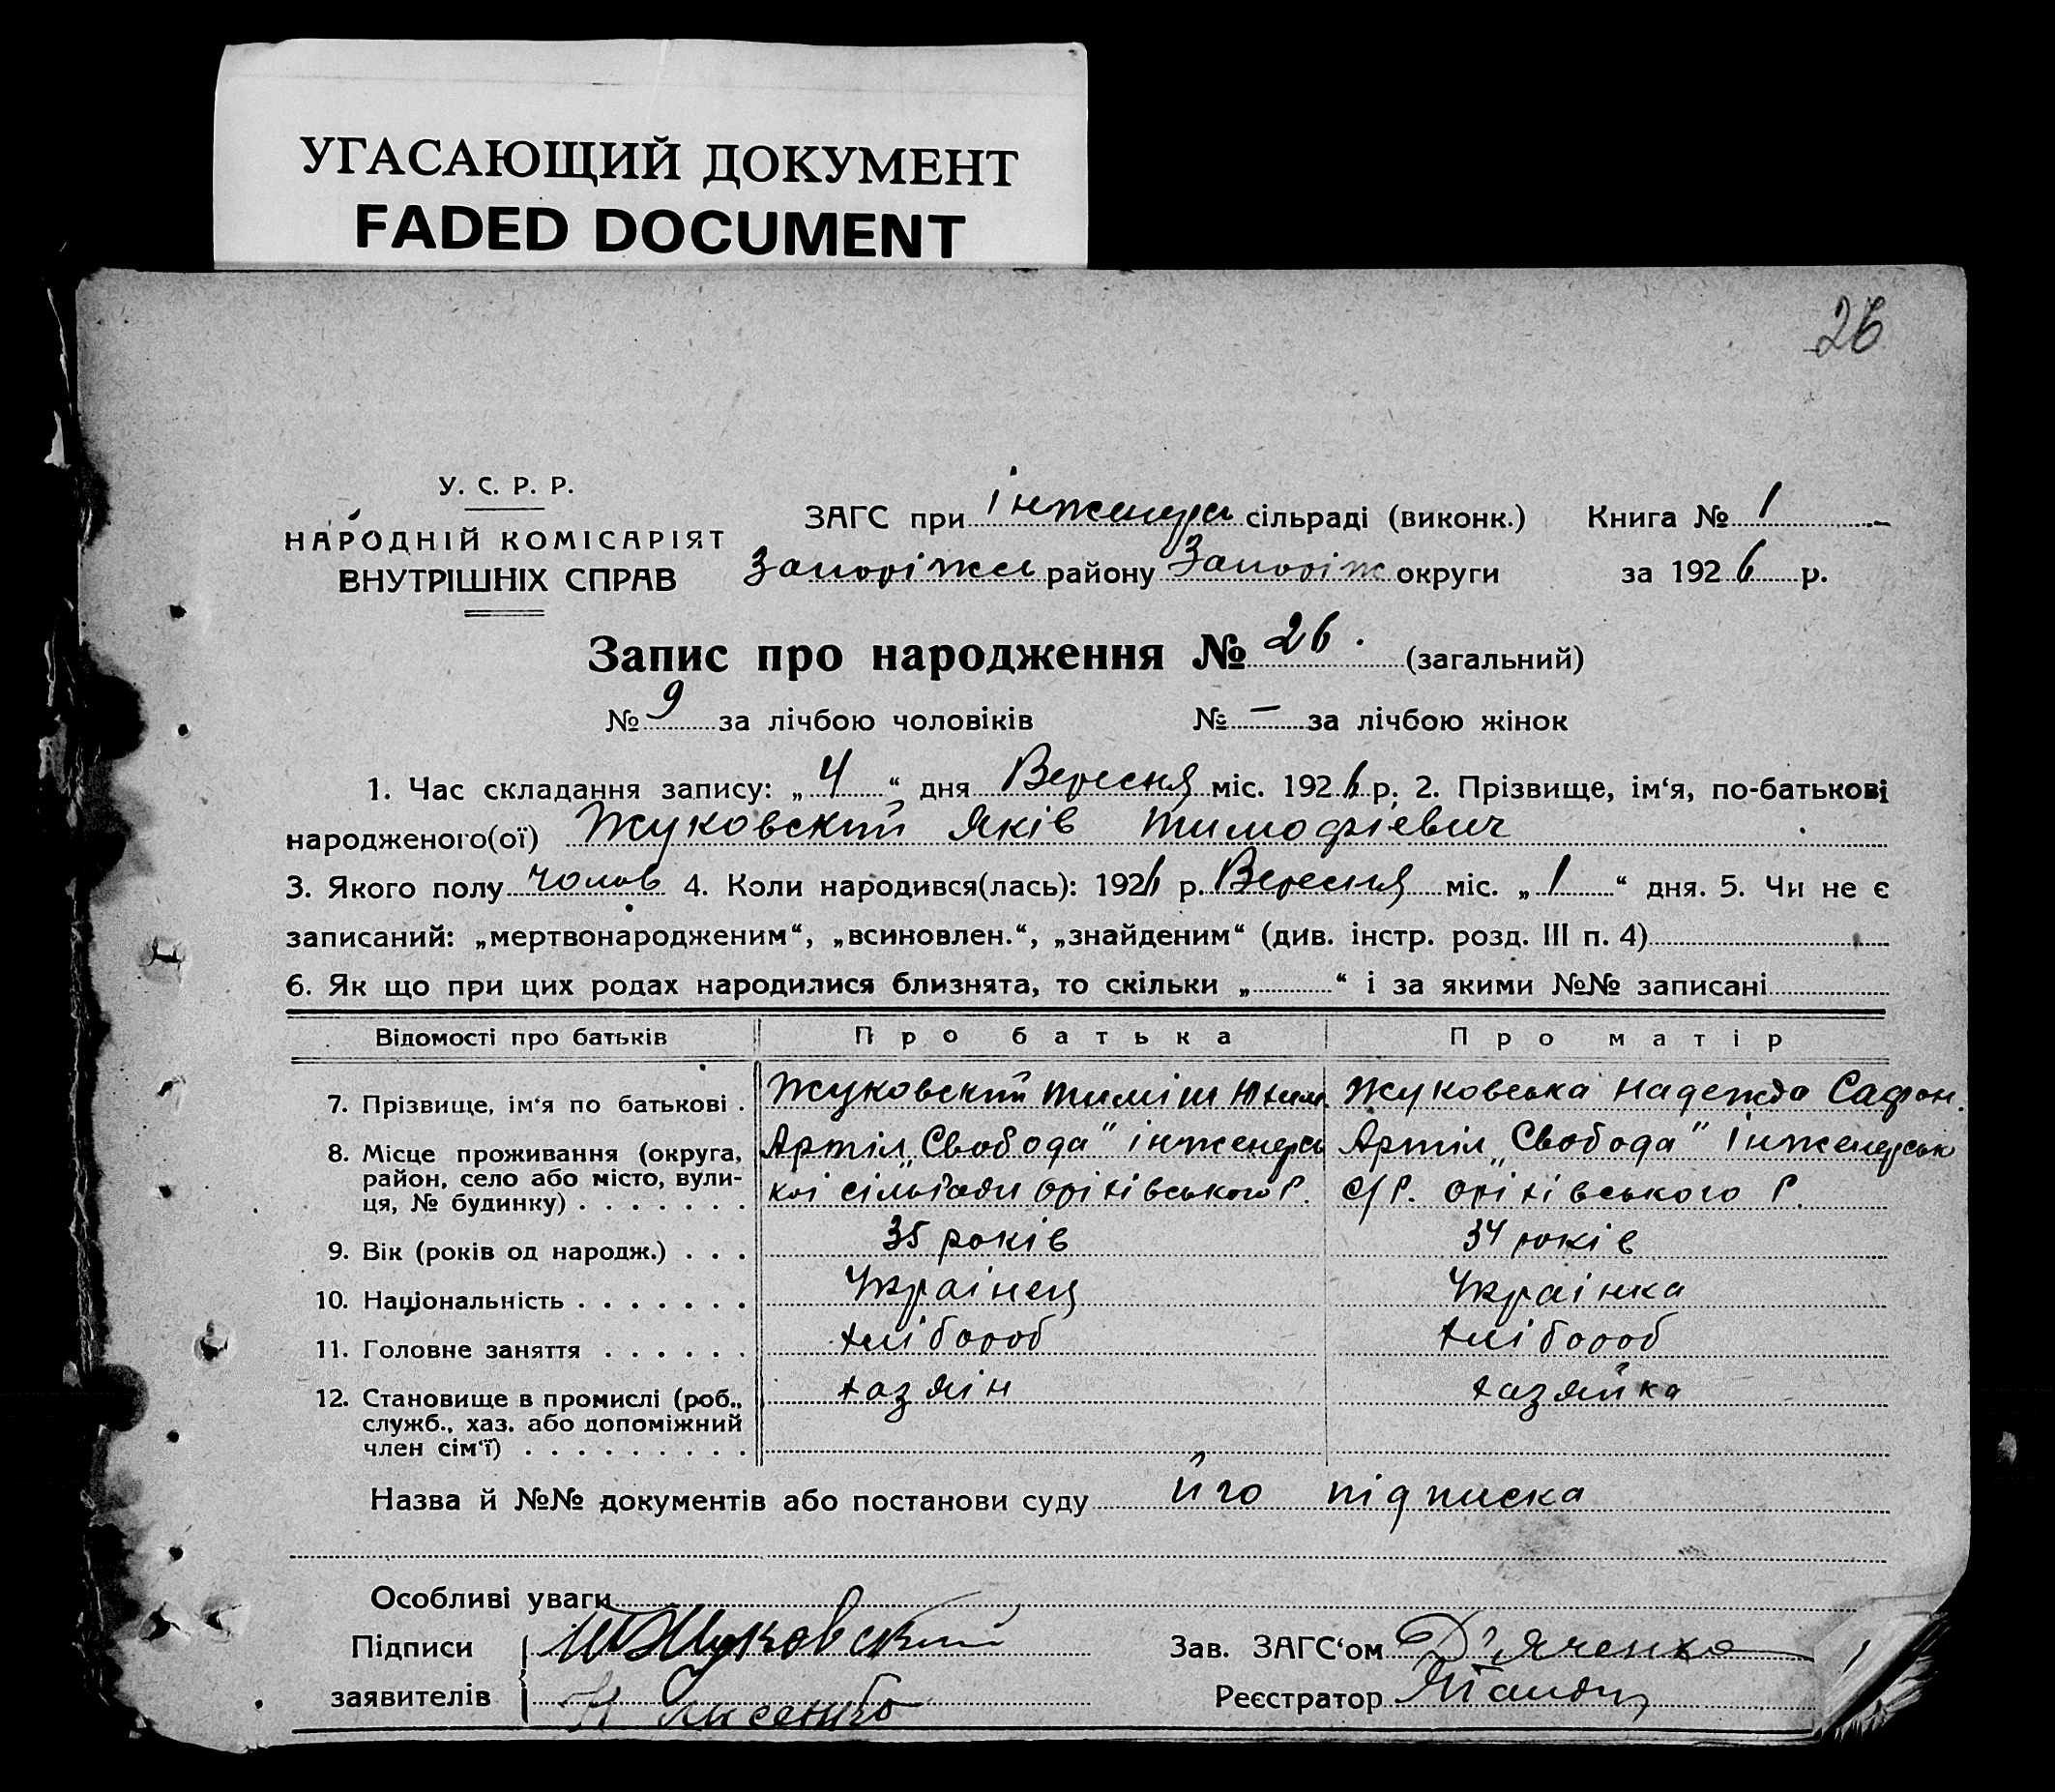 УГАСАЮЩИЙ ДОКУМЕНТ
FADED DOCUMENT
26
У. С. Р. Р.
НАРОДНІЙ КОМІСАРІЯТ
ВНУТРІШНІХ СПРАВ
ЗАГС при Інженерс сільраді (виконк.) Книга № 1
Запоріжсь району Запоріж округи за 1926 р.
Запис про народження № 26. (загальний)
№ 9 за лічбою чоловіків № — за лічбою жінок
1. Час складання запису: „4“ дня Вересня міс. 1926 р. 2. Прізвище, ім‘я, по-батькові
народженого(ої) Жуковский Яків Тимофієвич
3. Якого полу чолов 4. Коли народився(лась): 1926 р. Вересня міс. „1“ дня. 5. Чи не є
записаний: „мертвонародженим“, „всиновлен.“, „знайденим“ (див. інстр. розд. III п. 4)
6. Як що при цих родах народилися близнята, то скільки „ “ і за якими №№ записані
Відомості про батьків Про батька Про матір
7. Прізвище, ім‘я по батькові . Жуковский Тиміш Юхим. Жуковська Надежда Сафон.
8. Місце проживання (округа, Артіл „Свобода" інженерсь Артіл „Свобода" Інженерськ
район, село або місто, вули-
ця, № будинку) . . . . . . . кої сільради Оріхівського Р. С/Р. Оріхівського Р.
9. Вік (років од народж.) . . . 35 років 34 років
10. Національність . . . . . . . Украінец Украінка
11. Головне заняття . . . . . . хлібороб хлібороб
12. Становище в промислі (роб., хазяін хазяйка
служб., хаз. або допоміжний
член сім‘ї) . . . . . . . . .
Назва й №№ документів або постанови суду його підписка
Особливі уваги
Підписи Жуковский Зав. ЗАГС‘ом Д'яченко
заявителів Реєстратор